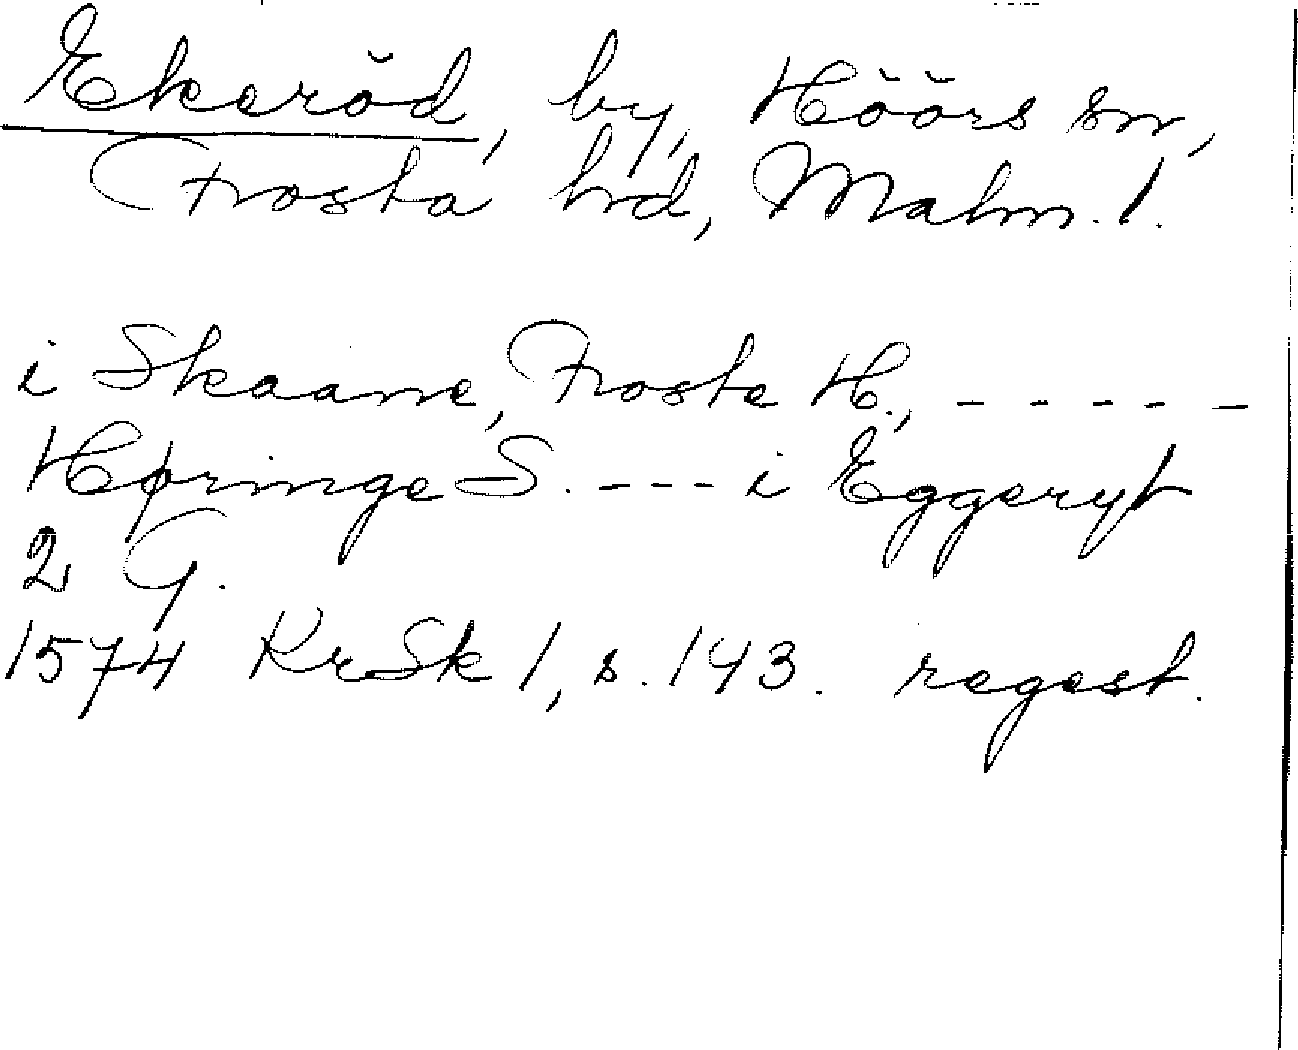 Ekeröd, by, Höörs sn,
Frosta hd, Malm. l.
i Skaane, Froste H., - - - - -
Høringe S. - - - i Eggeryt
2 G.
1574 KrSk 1, s. 143. regest.